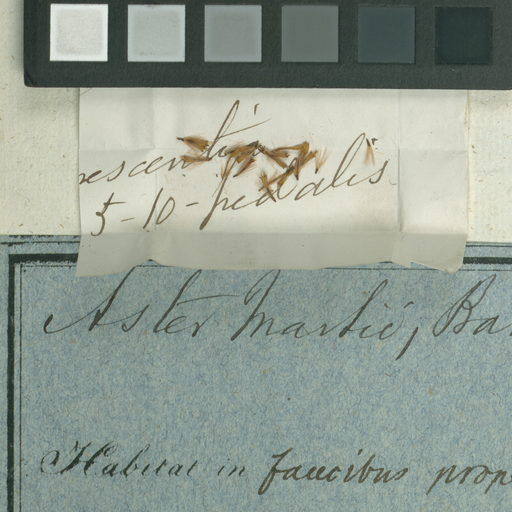 5-10-pedalis
Aster Martii, Ba
Habitat in faucibus prop